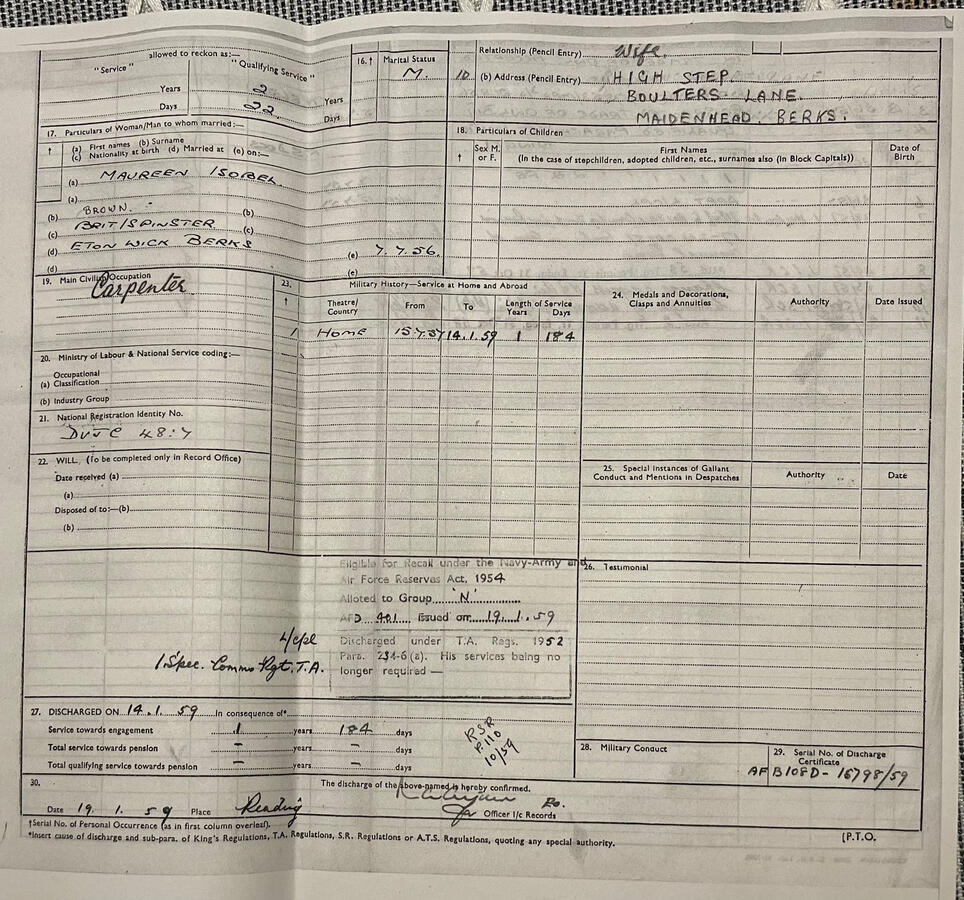 allowed to reckon as:—
"Service" "Qualifying Service"
Years 2 Years
Days 22 Days
16.† Marital Status
M.
Relationship (Pencil Entry) Wife
10 (b) Address (Pencil Entry) HIGH STEP.
BOULTERS LANE.
MAIDENHEAD. BERKS.
17. Particulars of Woman/Man to whom married:—
† (a) First names (b) Surname
(c) Nationality at birth (d) Married at (e) on:—
(a) MAUREEN ISOBEL.
(a)
(b) BROWN. (b)
(c) BRIT/SPINSTER (c)
(d) ETON WICK BERKS (e) 7.7.56.
(d) (e)
18. Particulars of Children
† Sex M. or F.
First Names
(In the case of stepchildren, adopted children, etc., surnames also (in Block Capitals))
Date of Birth
19. Main Civilian Occupation
Carpenter
20. Ministry of Labour & National Service coding:—
Occupational
(a) Classification
(b) Industry Group
21. National Registration Identity No.
DVJC 48:7
22. WILL (To be completed only in Record Office)
Date received (a)
(a)
Disposed of to:—(b)
(b)
23. Military History—Service at Home and Abroad
† Theatre/Country From To Length of Service Years Days
1 Home 15.7.57 14.1.59 1 184
24. Medals and Decorations, Clasps and Annuities
Authority
Date Issued
25. Special Instances of Gallant Conduct and Mentions in Despatches
Authority
Date
Eligible for Recall under the Navy-Army and
Air Force Reserves Act, 1954
Alloted to Group 'N'
AFD 401 issued on 19.1.59
Discharged under T.A. Regs. 1952
Para. 234-6(a). His services being no
longer required —
L/cpl
1 Spec. Comms Rgt. T.A.
26. Testimonial
27. DISCHARGED ON 14.1.59 In consequence of*
Service towards engagement 1 years 184 days
Total service towards pension – years – days
Total qualifying service towards pension – years – days
RSR
P110
10/59
28. Military Conduct
29. Serial No. of Discharge Certificate
AF B108D - 16798/59
30. The discharge of the above-named is hereby confirmed.
Date 19.1.59 Place Reading
Officer I/c Records
†Serial No. of Personal Occurrence (as in first column overleaf).
*Insert cause of discharge and sub-para. of King's Regulations, T.A. Regulations, S.R. Regulations or A.T.S. Regulations, quoting any special authority.
[P.T.O.